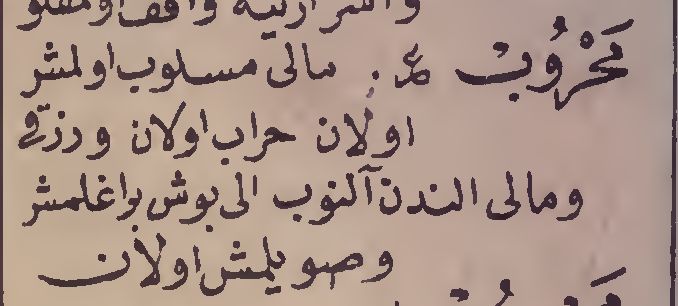 مَحْرُوبْ ع. مالی مسلوب اولمش
اولان حراب اولان ورزقی
ومالی الندن آلنوب الی بوش براغلمش
وصویلمش اولان